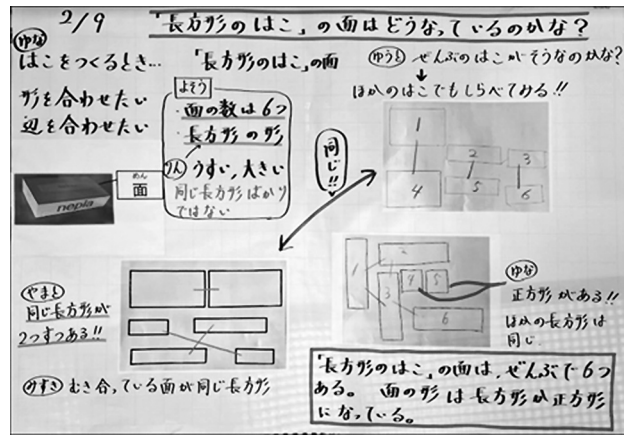 2/9
「長方形のはこ」の面はどうなっているのかな?
ゆな
はこをつくるとき…
形を合わせたい
辺を合わせたい
「長方形のはこ」の面
よそう
・面の数は6つ
・長方形の形
りん うすい,大きい
同じ長方形ばかり
ではない
めん
面
nepia
同じ!!
ゆうと ぜんぶのはこがそうなのかな?
ほかのはこでもしらべてみる!!
1
2
3
4
5
6
やまと
同じ長方形が
2つずつある!!
みずき むき合っている面が同じ長方形
1
2
3
4
5
6
ゆな
正方形がある!!
ほかの長方形は
同じ.
「長方形のはこ」の面は,ぜんぶで6つ
ある。面の形は長方形か正方形
になっている。